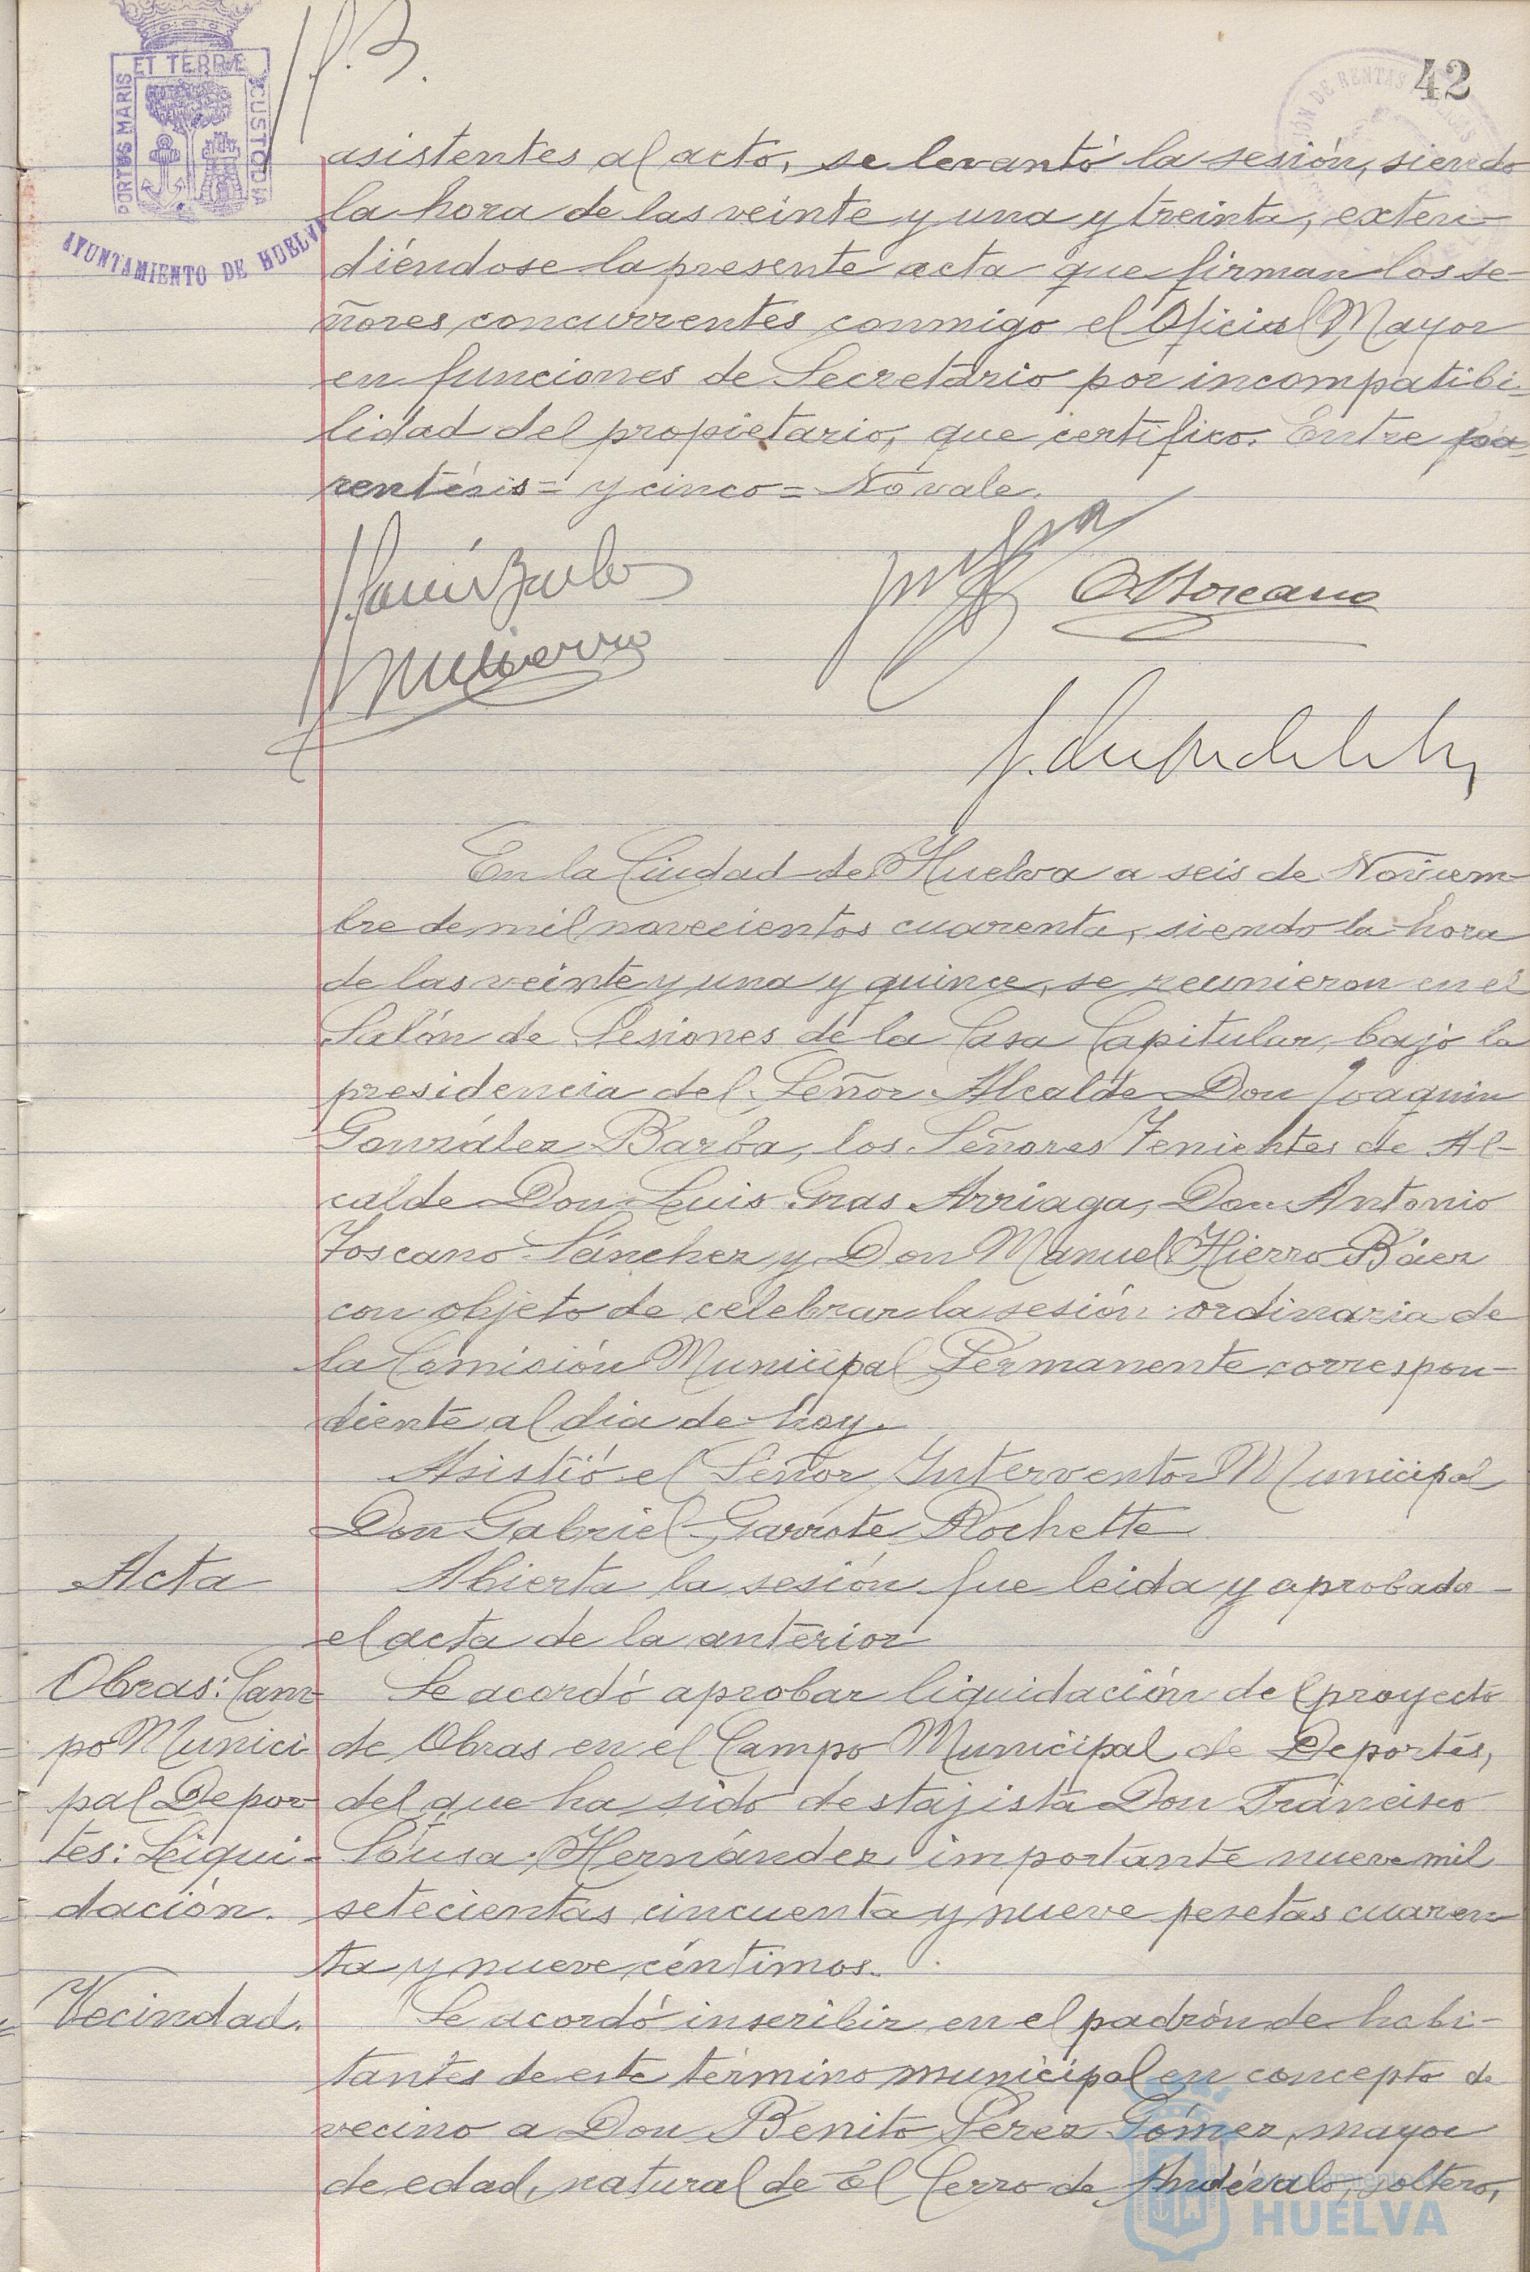 42
PORTUS MARIS ET TERRÆ CUSTODIA
AYUNTAMIENTO DE HUELVA
asistentes al acto, se levantó la sesión, siendo
la hora de las veinte y una y treinta, exten-
diéndose la presente acta que firman los se-
ñores concurrentes conmigo el Oficial Mayor
en funciones de Secretario por incompatibi-
lidad del propietario, que certifico. Entre pa-
rentésis = y cinco = No vale.
A Toscano
En la Ciudad de Huelva a seis de Noviem-
bre de mil novecientos cuarenta, siendo la hora
de las veinte y una y quince, se reunieron en el
Salón de Sesiones de la Casa Capitular, bajo la
presidencia del Señor Alcalde Don Joaquin
González Barba, los Señores Tenientes de Al-
calde Don Luis Gras Arriaga, Don Antonio
Toscano Sánchez y Don Manuel Hierro Báez
con objeto de celebrar la sesión ordinaria de
la Comisión Municipal Permanente correspon-
diente al dia de hoy.
Asistió el Señor Interventor Municipal
Don Gabriel Garrote Rochette
Acta
Abierta la sesión fue leida y aprobada
el acta de la anterior
Obras: Cam-
po Munici
pal Depor-
tes: Liqui-
dación.
Se acordó aprobar liquidación del proyecto
de Obras en el Campo Municipal de Deportes,
del que ha sido destajista Don Francisco
Sousa Hernández importante nueve mil
setecientas cincuenta y nueve pesetas cuaren
ta y nueve céntimos.
Vecindad.
Se acordó inscribir en el padrón de habi-
tantes de este término municipal en concepto de
vecino a Don Benito Perez Gómez, mayor
de edad, natural de El Cerro de Andévalo, soltero,
Ayuntamiento de
HUELVA